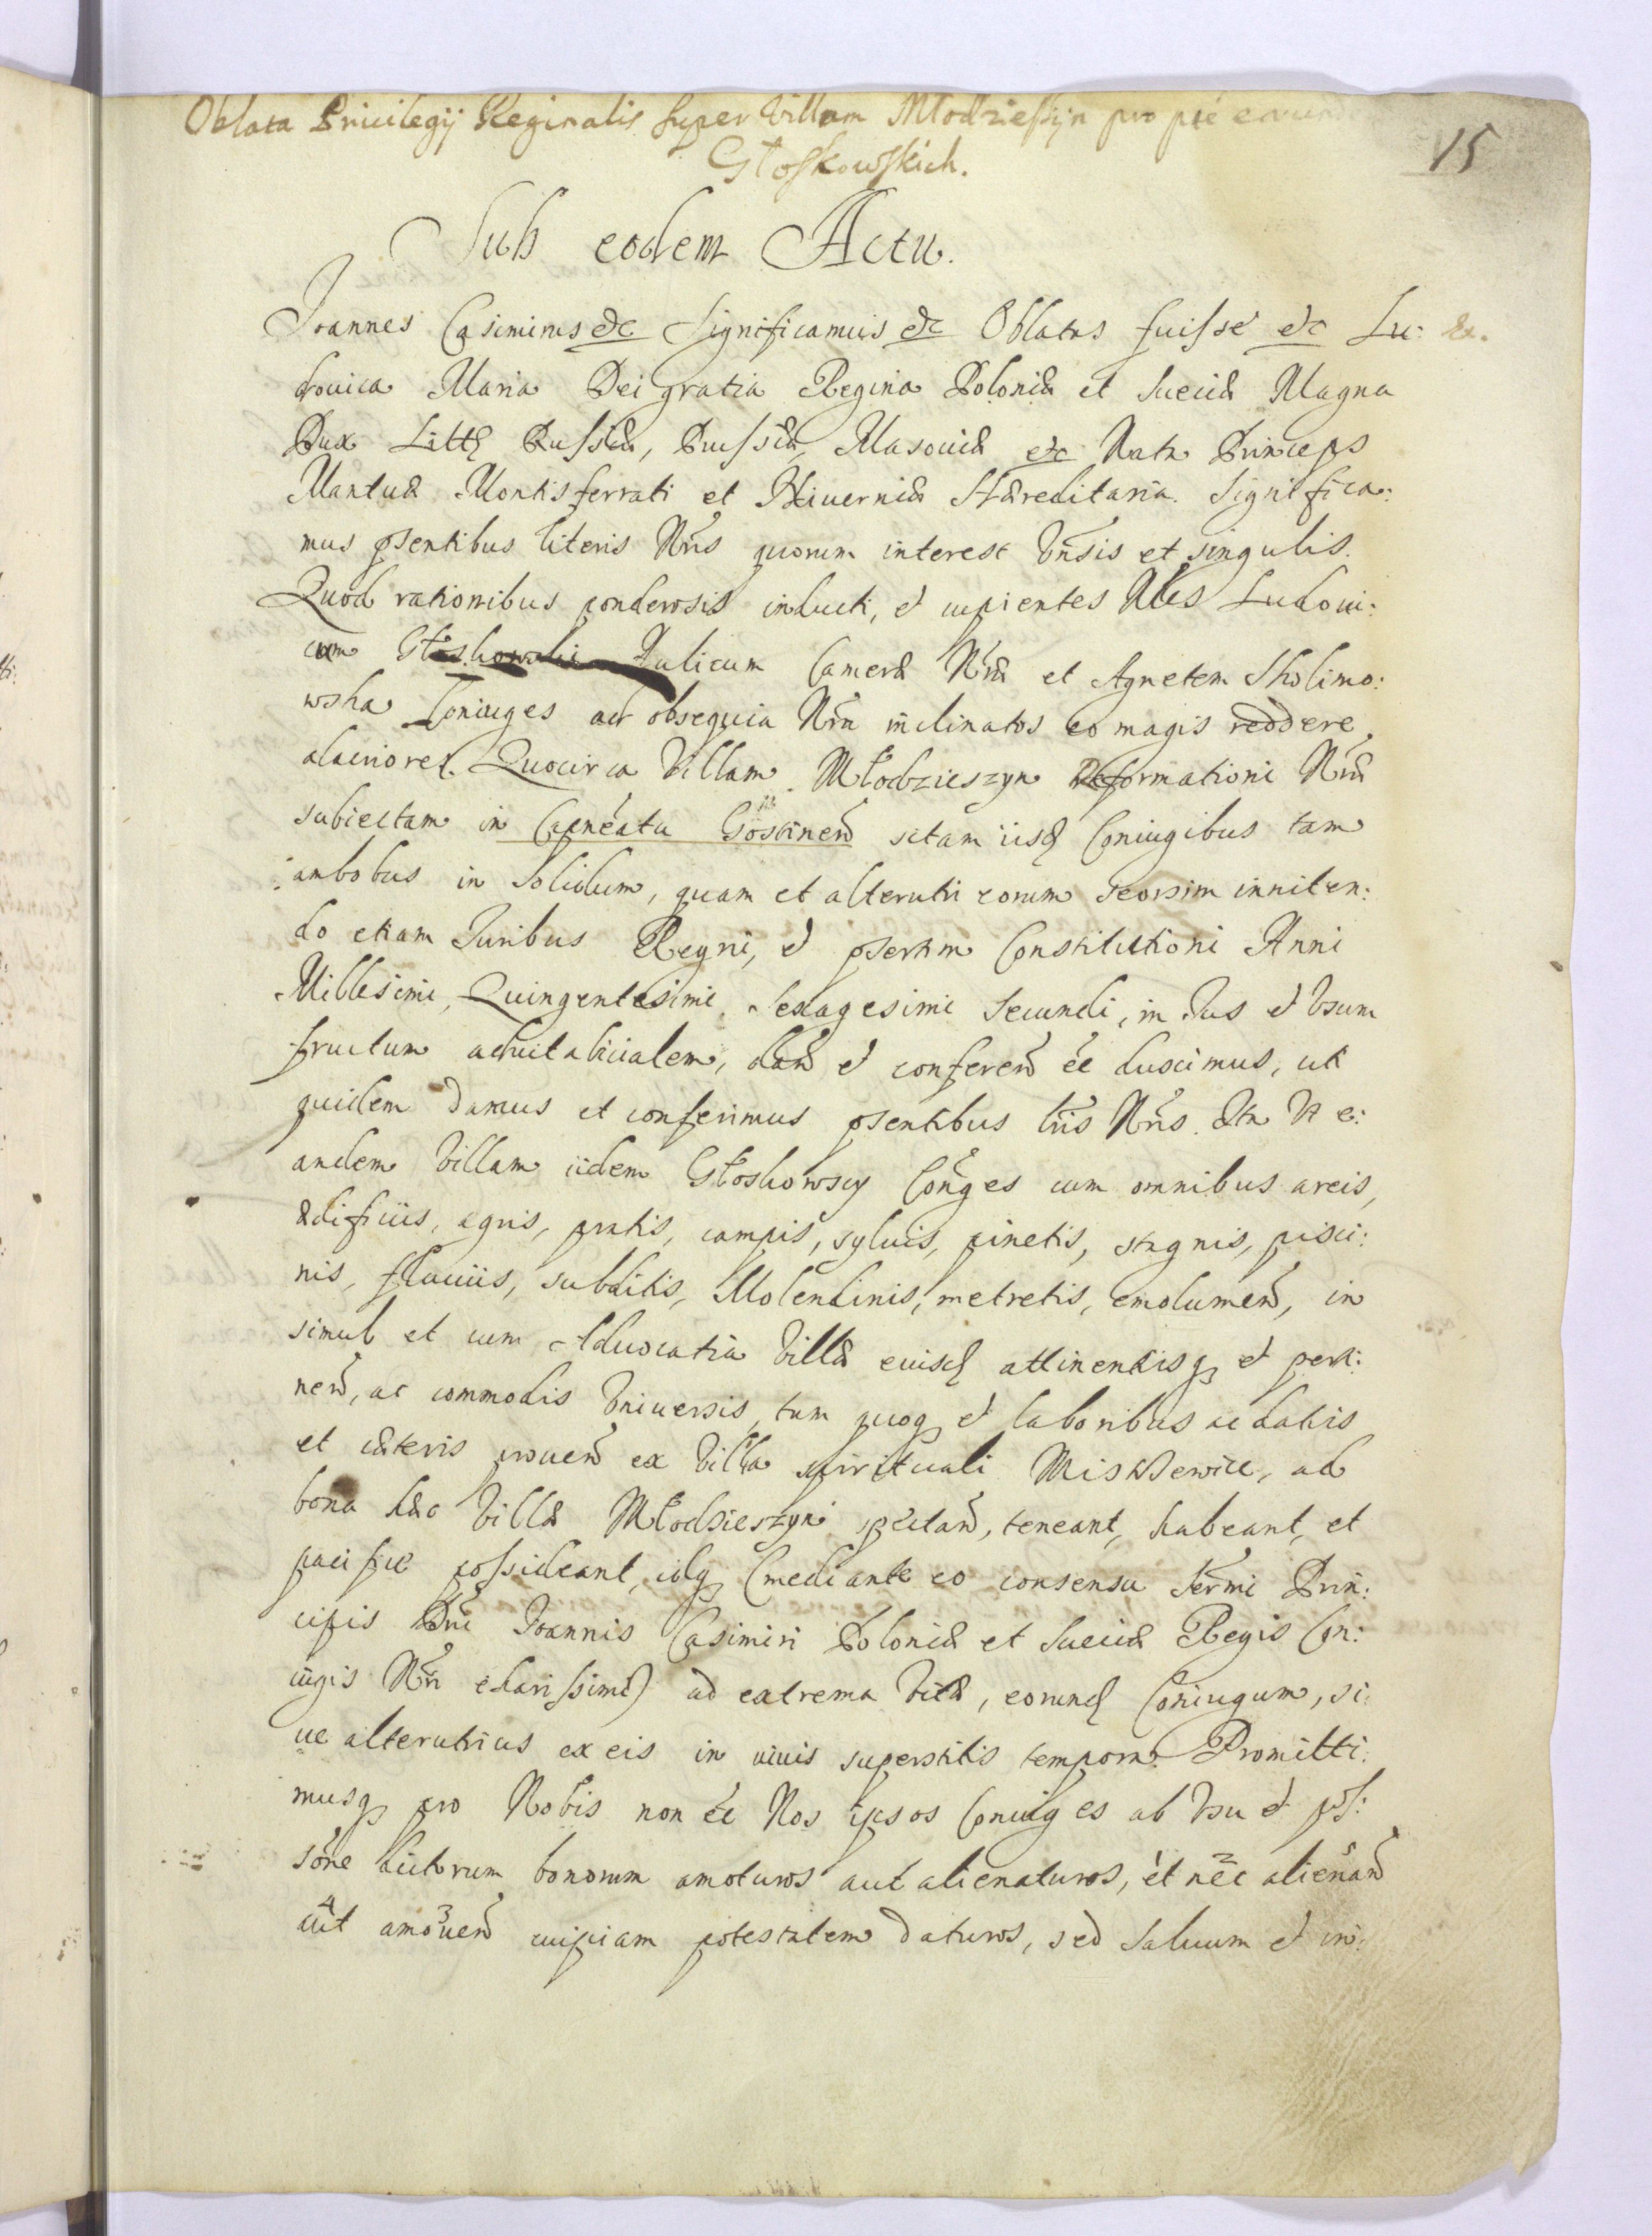 Oblata Priuilegij Reginalis super Villam Młodzieszyn pro pte eorund
Głoskowskich.
15
Sub eodem Actu.
Joannes Casimirus etc Significamus etc Oblatas fuisse etc Lu: &.
douica Maria Dei gratia Regina Poloniæ et Sueciæ Magna
Dux Litt Russiæ, Prussiæ, Masouiæ etc Nata Princeps
Mantuæ Montisferrati et Niuerniæ Hæreditaria. Significa:
mus pñtibus literis Nris quorum interest Vnsis et singulis.
Quod rationibus ponderosis inducti, et cupientes Nbles Ludoui:
cum Głoskowski Aulicum Cameræ Nræ et Agnetem Skolimo:
wska Coniuges ad obsequia Nra inclinatos eo magis reddere
alacriores. Quocirca Villam Młodzieszyn Reformationi Nræ
subiectam in Capneatu Gostinen sitam iisd Coniugibus tam
ambobus in solidum, quam et alterutri eorum seorsim inniten:
do etiam Juribus Regni, et psertim Constitutioni Anni
Millesimi, Quingentesimi Sexagesimi Secundi, in Jus et Vsum
fructum aduitalitialem, dan et conferen ee duximus, uti
quidem damus et conferimus psentibus lris Nris. Ita Vt e:
andem Villam iidem Głoskowscy Conges cum omnibus areis,
ædificiis, agris, pratis, campis, syluis, pinetis, stagnis, pisci:
nis, fluuiis, subditis, Molendinis, metretis, emolumen, in
simul et cum Aduocatia Villæ eiusd attinentiisq et perti:
nen, ac commodis Vniuersis, tum quoq et laboribus ac datiis
et cæteris prouen ex Villa spirituali Mistrzewice, ad
bona hæc Villæ Młodzieszyn spectan, teneant, habeant, et
pacifice possideant, idq (mediante eo consensu Sermi Prin:
cipis Dni Joannis Casimiri Poloniæ et Sueciæ Regis Con:
iugis Nri charissimi) ad extrema Vitæ, eorund Coniugum, si:
ue alterutrius ex eis in viuis superstitis tempora. Promitti:
musq pro Nobis non ee Nos ipsos Coniuges ab Vsu et pos:
sone dictorum bonorum amoturos aut alienaturos, et nec alienan
aut amouen cuipiam potestatem daturos, sed Saluum et in: